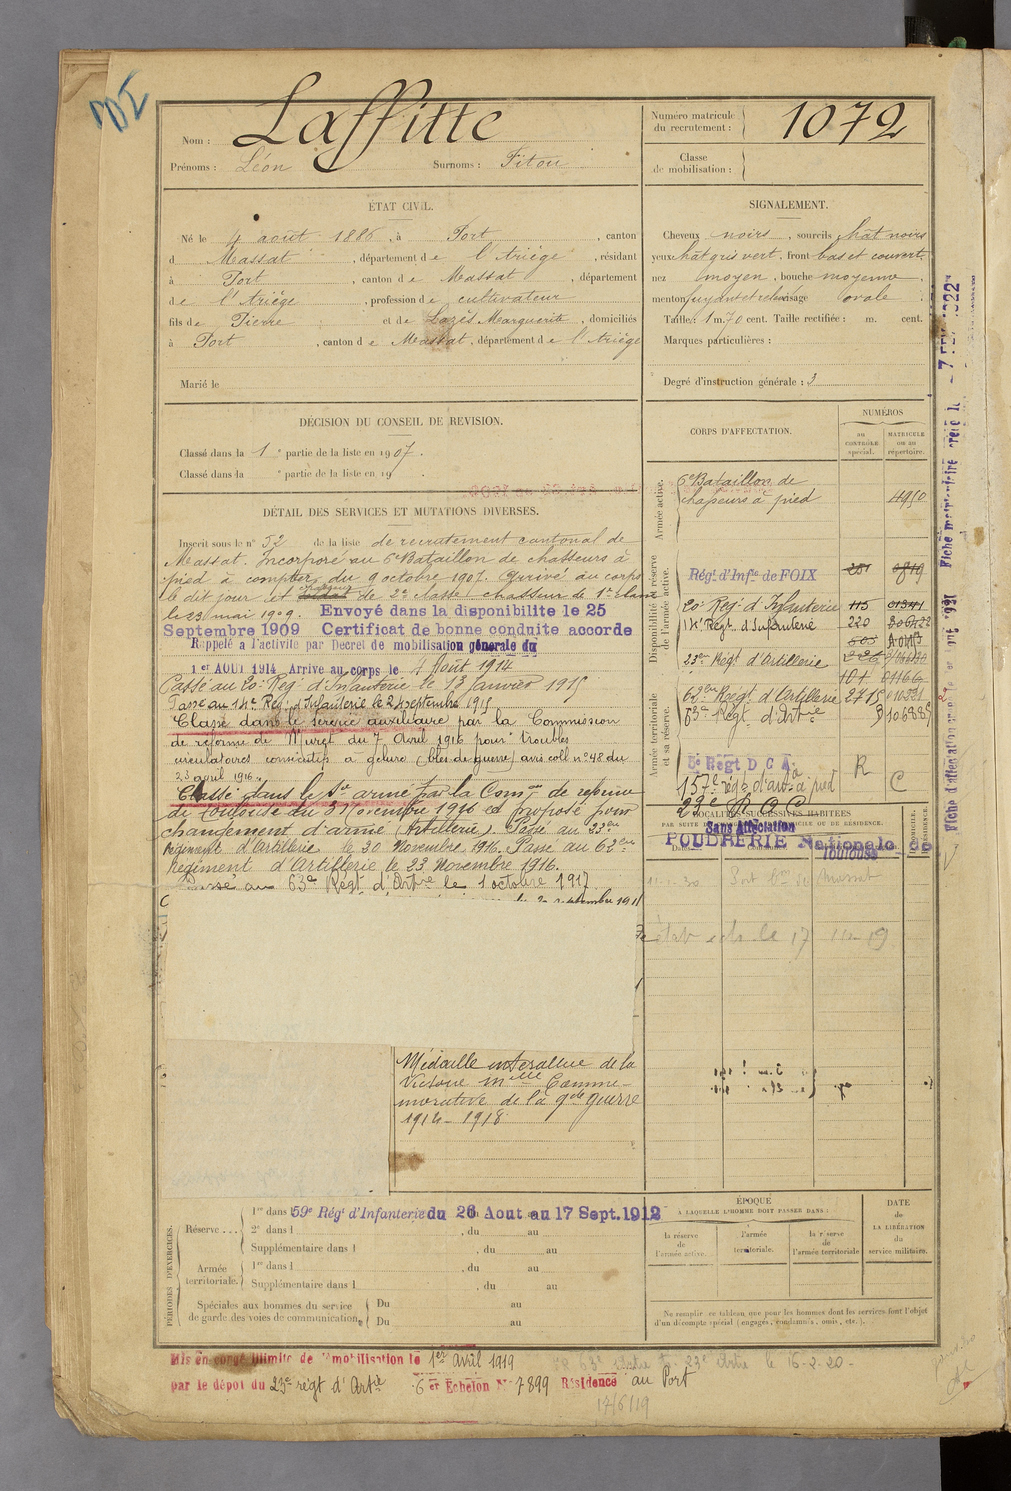 Nom : Laffitte
Prénoms : Léon Surnoms : Titou
Numéro matricule du recrutement : 1072
Classe de mobilisation :
ÉTAT CIVIL.
Né le 4 août 1886, à Port, canton
d Massat, département de l'Ariège, résidant
à Port, canton de Massat, département
de l'Ariège, profession de cultivateur
fils de Pierre et de Lazès Marguerite, domiciliés
à Port, canton de Massat, département de l'Ariège
Marié le
SIGNALEMENT.
Cheveux noirs, sourcils chat noirs
yeux chat gris vert, front bas et couvert,
nez moyen, bouche moyenne
menton fuyant et relevé visage ovale
Taille : 1 m. 70 cent. Taille rectifiée : m. cent.
Marques particulières :
Degré d'instruction générale : 3
DÉCISION DU CONSEIL DE REVISION.
Classé dans la 1e partie de la liste en 1907.
Classé dans la e partie de la liste en 19
DÉTAIL DES SERVICES ET MUTATIONS DIVERSES.
Inscrit sous le n° 52 de la liste de recrutement cantonal de
Massat. Incorporé au 6e Bataillon de chasseurs à
pied à compter du 9 octobre 1907. Arrivé au corps
le dit jour et chasseur de 2e classe, chasseur de 1re classe
le 23 mai 1909. Envoyé dans la disponibilite le 25
Septembre 1909 Certificat de bonne conduite accorde
Rappelé a l'activité par Decret de mobilisation génerale du
1er AOUT 1914 Arrive au corps le 4 Août 1914
Passé au 20e Rég. d'Infanterie le 13 Janvier 1915
Passé au 14e Rég. d'Infanterie le 24 septembre 1915
Classé dans le service auxiliaire par la Commission
de réforme de Muret du 7 Avril 1916 pour troubles
circulatoires consécutifs à gelure (bles. de guerre) avis coll n° 48 du
23 avril 1916.
Classé dans le Sce armé par la Comon de réforme
de Toulouse du 3 Novembre 1916 et proposé pour
changement d'arme (Artillerie). Passé au 23eme
régiment d'Artillerie le 30 Novembre 1916. Passé au 62eme
Régiment d'Artillerie le 23 Novembre 1916.
Passé au 63e Régt d'Artie le 1 octobre 1917
Médaille interalliée de la
Victoire mlle Comme-
morative de la gde guerre
1914-1918
CORPS D'AFFECTATION.
NUMÉROS
au CONTRÔLE spécial.
MATRICULE ou au répertoire.
Armée active.
6e Bataillon de
chasseurs à pied 4950
Disponibilité et réserve de l'armée active.
Régt d'Infie de FOIX
20e Reg. d'Infanterie 115
14e Régt d'Infanterie 220
23em Régt d'Artillerie
62em Regt d'Artillerie 2715
63e Régt d'Artie
Armée territoriale et sa réserve.
5e Regt D C A R
157e régt d'arta à pied C
23e R A C
LOCALITÉS SUCCESSIVES HABITÉES
Sans Affectation
POUDRERIE Nationale de
Toulouse
PÉRIODES D'EXERCICES.
Réserve ... 1re dans l 59e Régt d'Infanterie du 26 Aout au 17 Sept. 1912
2e dans l , du au
Supplémentaire dans l , du au
Armée territoriale. 1re dans l , du au
Supplémentaire dans l , du au
Spéciales aux hommes du service de garde des voies de communication. Du au
Du au
ÉPOQUE
A LAQUELLE L'HOMME DOIT PASSER DANS :
la réserve de l'armée active.
l'armée territoriale.
la réserve de l'armée territoriale
DATE de LA LIBÉRATION du service militaire.
Ne remplir ce tableau que pour les hommes dont les services font l'objet
d'un décompte spécial (engagés, condamnés, omis, etc.).
Mis en congé illimité de démobilisation le 1er avril 1919
par le dépot du 23e régt d'Artie 6 er Echelon N° 7899 Résidence au Port
17/6/19